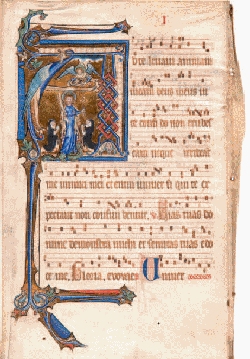 I
d te levavi animam
meam deus meus in
te confido non erubes
cam neque irrideant
me inimici mei etenim universi qui te ex
pectant non confundentur. Vias tuas do
mine demonstra michi et semitas tuas edo
ce me. Gloria, evovae. Univer